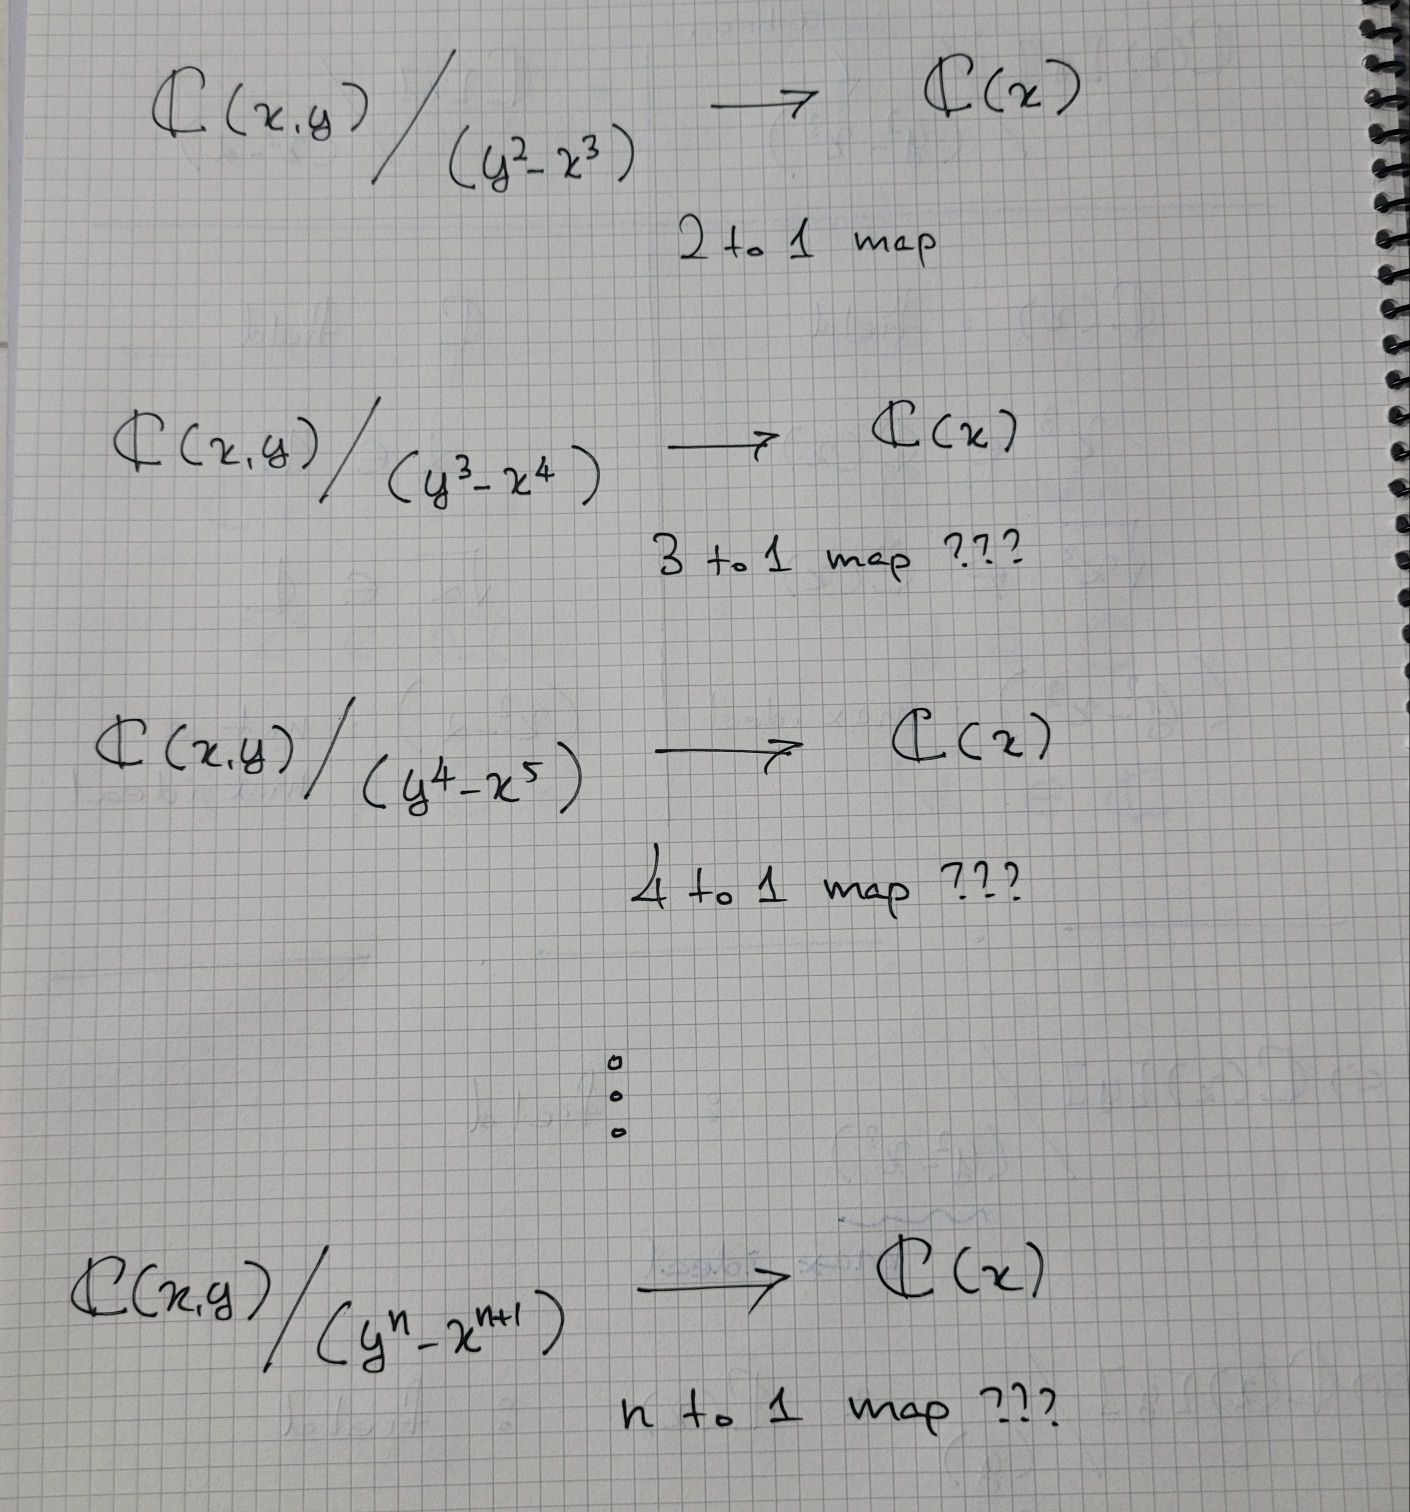 ℂ(x,y)/(y²-x³) → ℂ(x)
2 to 1 map
ℂ(x,y)/(y³-x⁴) → ℂ(x)
3 to 1 map ???
ℂ(x,y)/(y⁴-x⁵) → ℂ(x)
4 to 1 map ???
⋮
ℂ(x,y)/(yⁿ-xⁿ⁺¹) → ℂ(x)
n to 1 map ???